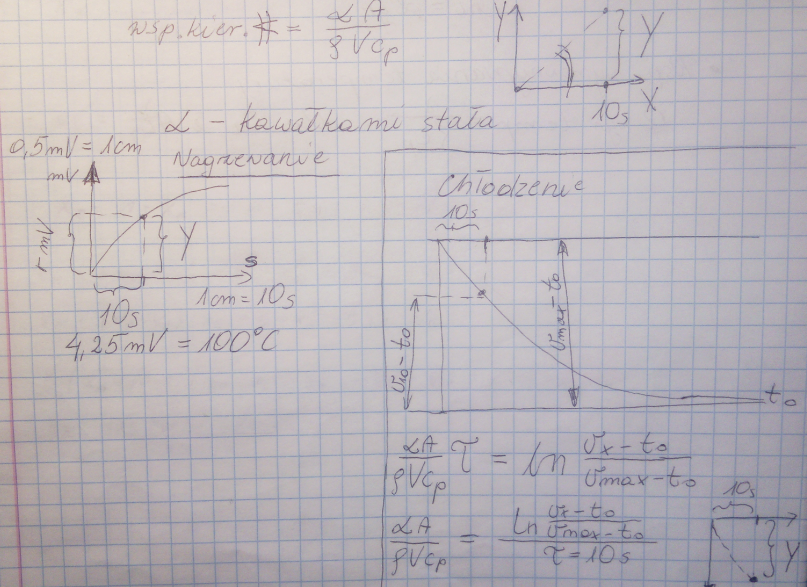 wsp. kier. # = αA / ρVcp
Y
Y
10s
X
α - kawałkami stała
0,5mV = 1cm
Nagrzewanie
mV
mV
Y
s
10s
1cm = 10s
4,25mV = 100°C
Chłodzenie
10s
υ10 - to
υmax - to
to
αA / ρVcp τ = ln υx - to / υmax - to
αA / ρVcp = ln υx - to / υmax - to / τ = 10s
10s
Y